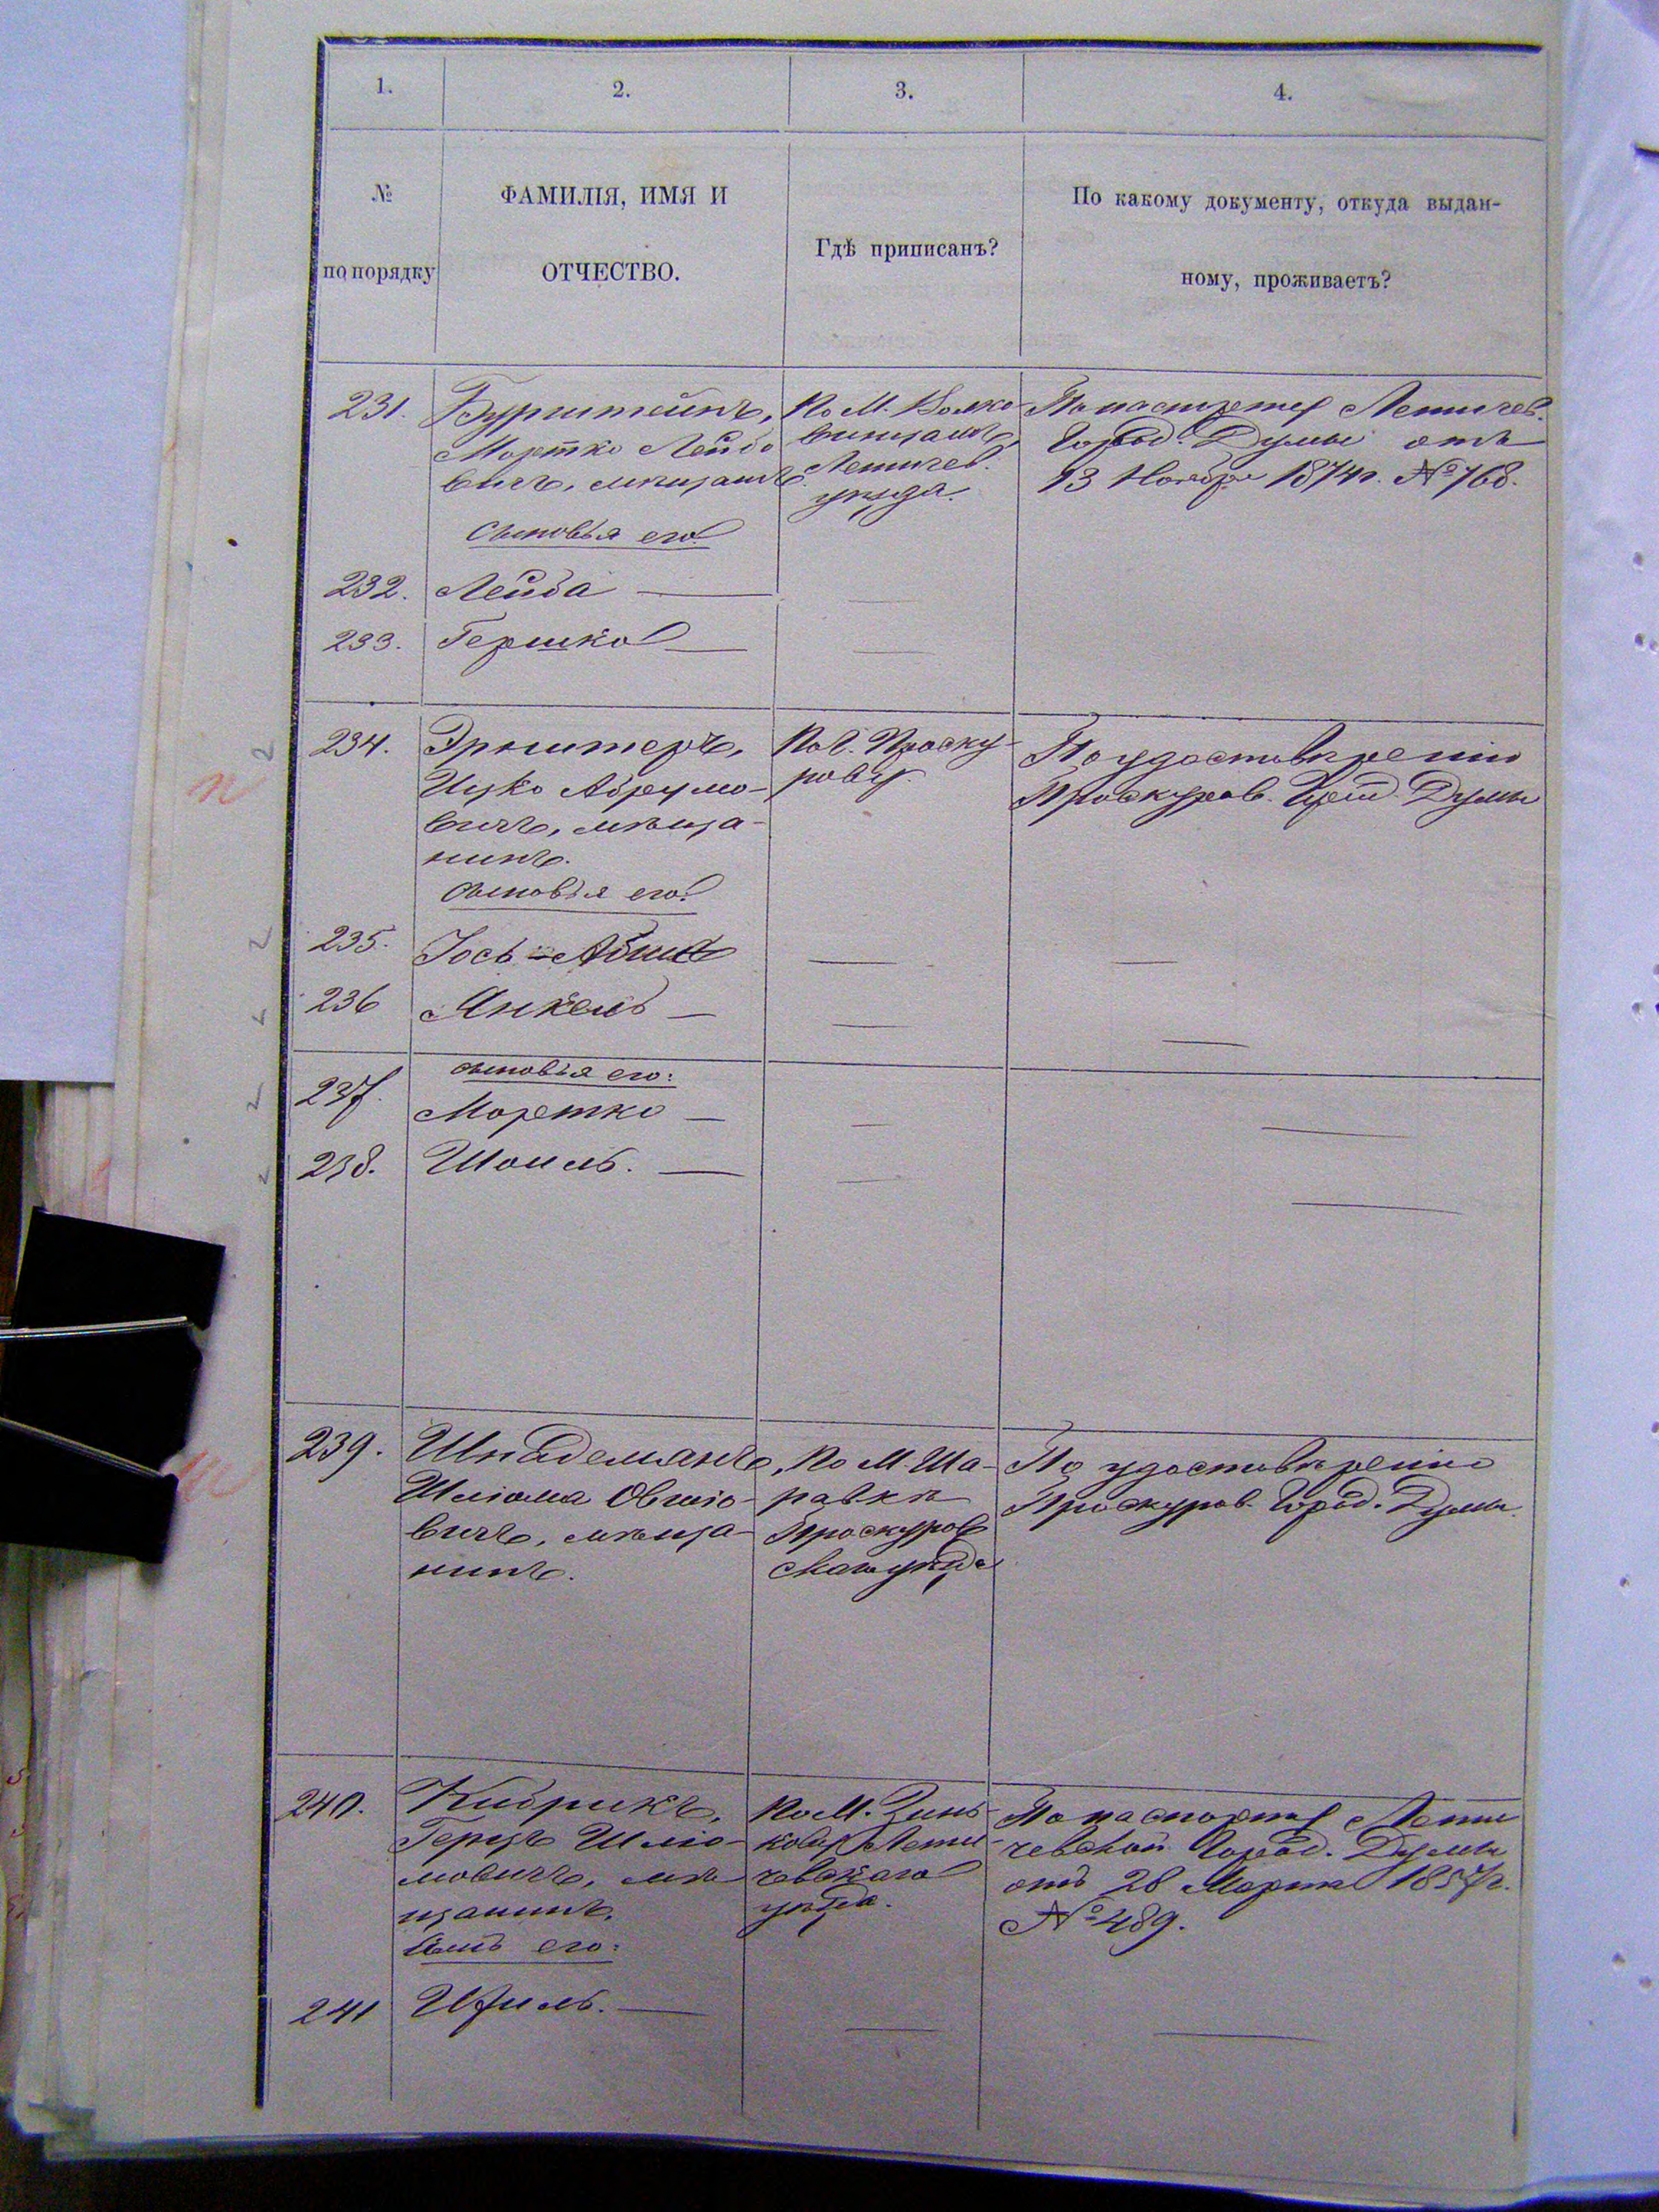 1. 2. 3. 4.
№
по порядку
ФАМИЛІЯ, ИМЯ И
ОТЧЕСТВО.
Гдѣ приписанъ?
По какому документу, откуда выдан-
ному, проживаетъ?
231. Бурштейнъ,
Мортко Лейбо
вичъ, мѣщанинъ
сыновья его
По М. Волко
винцамъ,
Летичев.
уѣзда.
По паспорту Летичев.
Город. Думы отъ
13 Ноября 1874 г. № 768.
232. Лейба —
233. Гершко —
234. Эрлитеръ,
Ицко Абрумо-
вичъ, мѣща-
нинъ.
сыновья его:
По Г. Проску-
рову.
По удостовѣренію
Проскуров. Город. Думы
235. Іось-Абиш
236 Янкель —
сыновья его:
237. Мортко —
238. Шоиль. —
239. Шпадеманъ,
Шлома Овшіо-
вичъ, мѣща-
нинъ.
По М. Ша-
равкѣ
Проскуров
скаго уѣзда
По удостовѣренію
Проскуров. Город. Думы.
240. Кибрикъ,
Герцъ Шліо-
мовичъ, мѣ
щанинъ.
Сынъ его:
По М. Зинь-
кову Лети-
чевскаго
уѣзда.
По паспорту Лети
чевской Город. Думы
отъ 28 Марта 1857 г.
№ 489.
241 Изиль. —